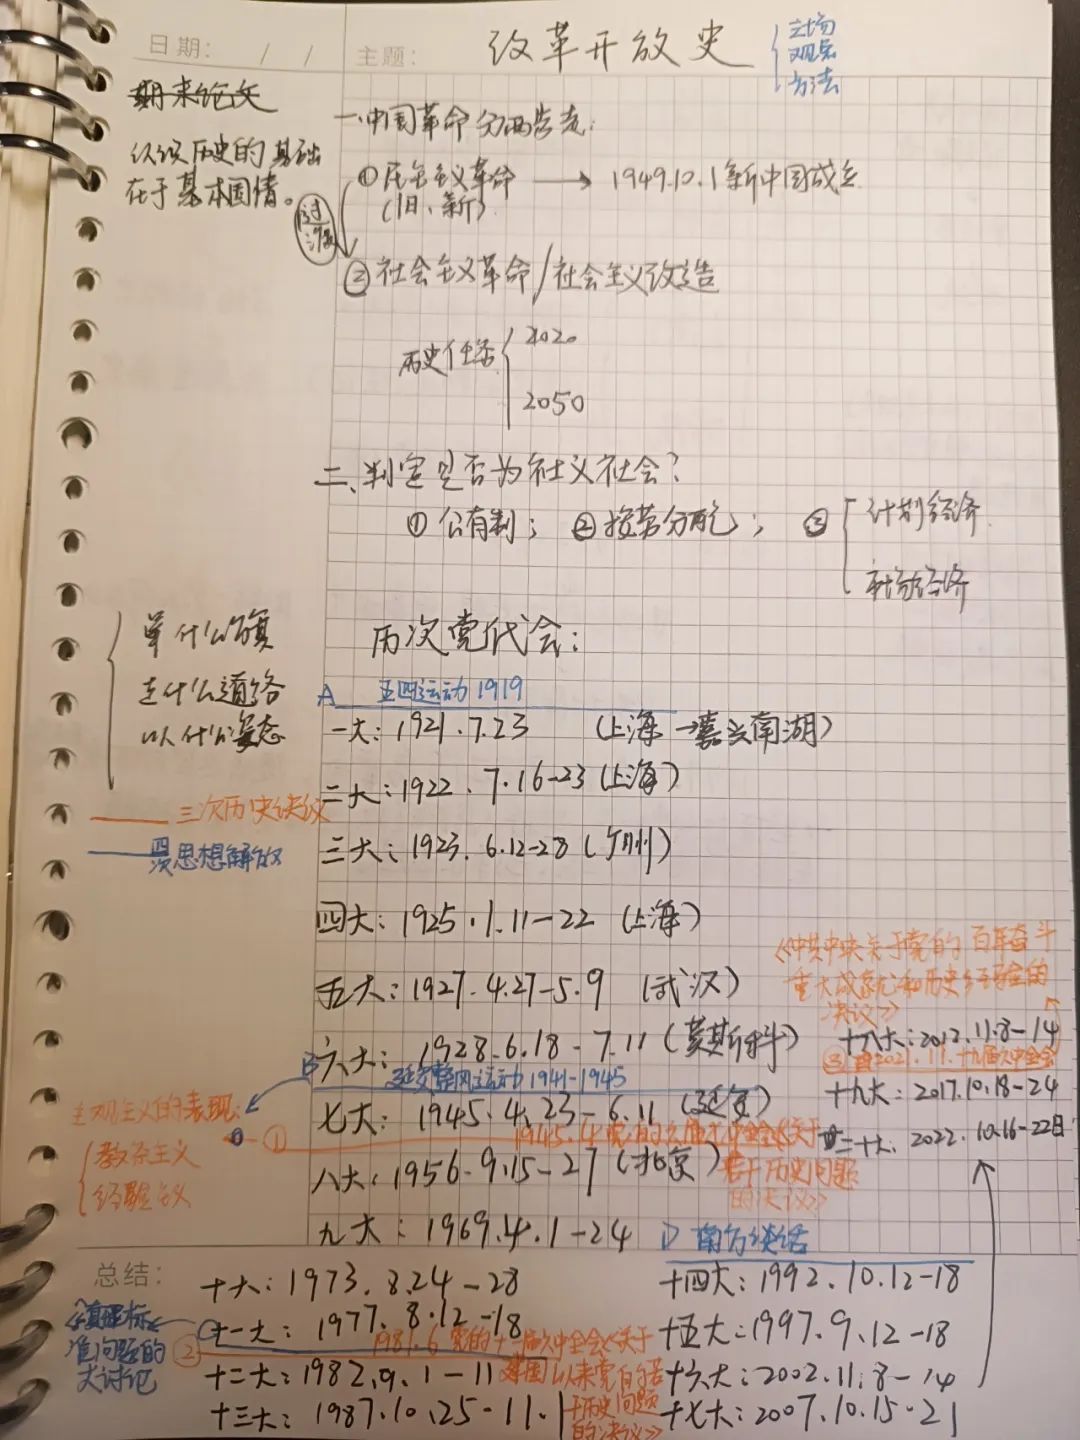 日期： / / 主题： 改革开放史
立场
观点
方法
期末论文
认识历史的基础
在于基本国情。
一、中国革命分两步走：
①民主主义革命 → 1949.10.1新中国成立
(旧、新)
过渡
②社会主义革命/社会主义改造
历史任务
2020
2050
二、判定是否为社义社会？
①公有制； ②按劳分配； ③
计划经济
市场经济
举什么旗
走什么道路
以什么姿态
三次历史决议
四次思想解放
历次党代会：
A 五四运动1919
一大：1921.7.23 (上海→嘉兴南湖)
二大：1922.7.16-23 (上海)
三大：1923.6.12-28 (广州)
四大：1925.1.11-22 (上海)
五大：1927.4.27-5.9 (武汉)
六大：1928.6.18-7.11 (莫斯科)
B 延安整风运动1941-1945
七大：1945.4.23-6.11 (延安)
① 1945.4党的六届七中全会《关于
若干历史问题
的决议》
主观主义的表现：
教条主义
经验主义
八大：1956.9.15-27 (北京)
九大：1969.4.1-24
总结：
十大：1973.8.24-28
十一大：1977.8.12-18
《真理标
准问题的
大讨论
② 1981.6党的十一届六中全会《关于
建国以来党的若
干历史问题
的决议》
十二大：1982.9.1-11
十三大：1987.10.25-11.1
D 南方谈话
十四大：1992.10.12-18
十五大：1997.9.12-18
十六大：2002.11.8-14
十七大：2007.10.15-21
《中共中央关于党的百年奋斗
重大成就和历史经验的
决议》
十八大：2012.11.8-14
③ 2021.11.十九届六中全会
十九大：2017.10.18-24
二十大：2022.10.16-22日